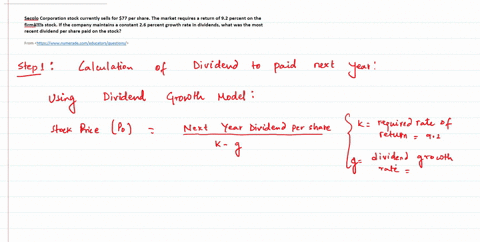 Secolo Corporation stock currently sells for $77 per share. The market requires a return of 9.2 percent on the
firmâ€™s stock. If the company maintains a constant 2.6 percent growth rate in dividends, what was the most
recent dividend per share paid on the stock?
From <https://www.numerade.com/educators/questions/>
Step 1: Calculation of Dividend to paid next year:
Using Dividend Growth Model:
Stock Price (P0) = Next Year Dividend per share
K - g
K = required rate of
return = 9.2
g = dividend growth
rate =